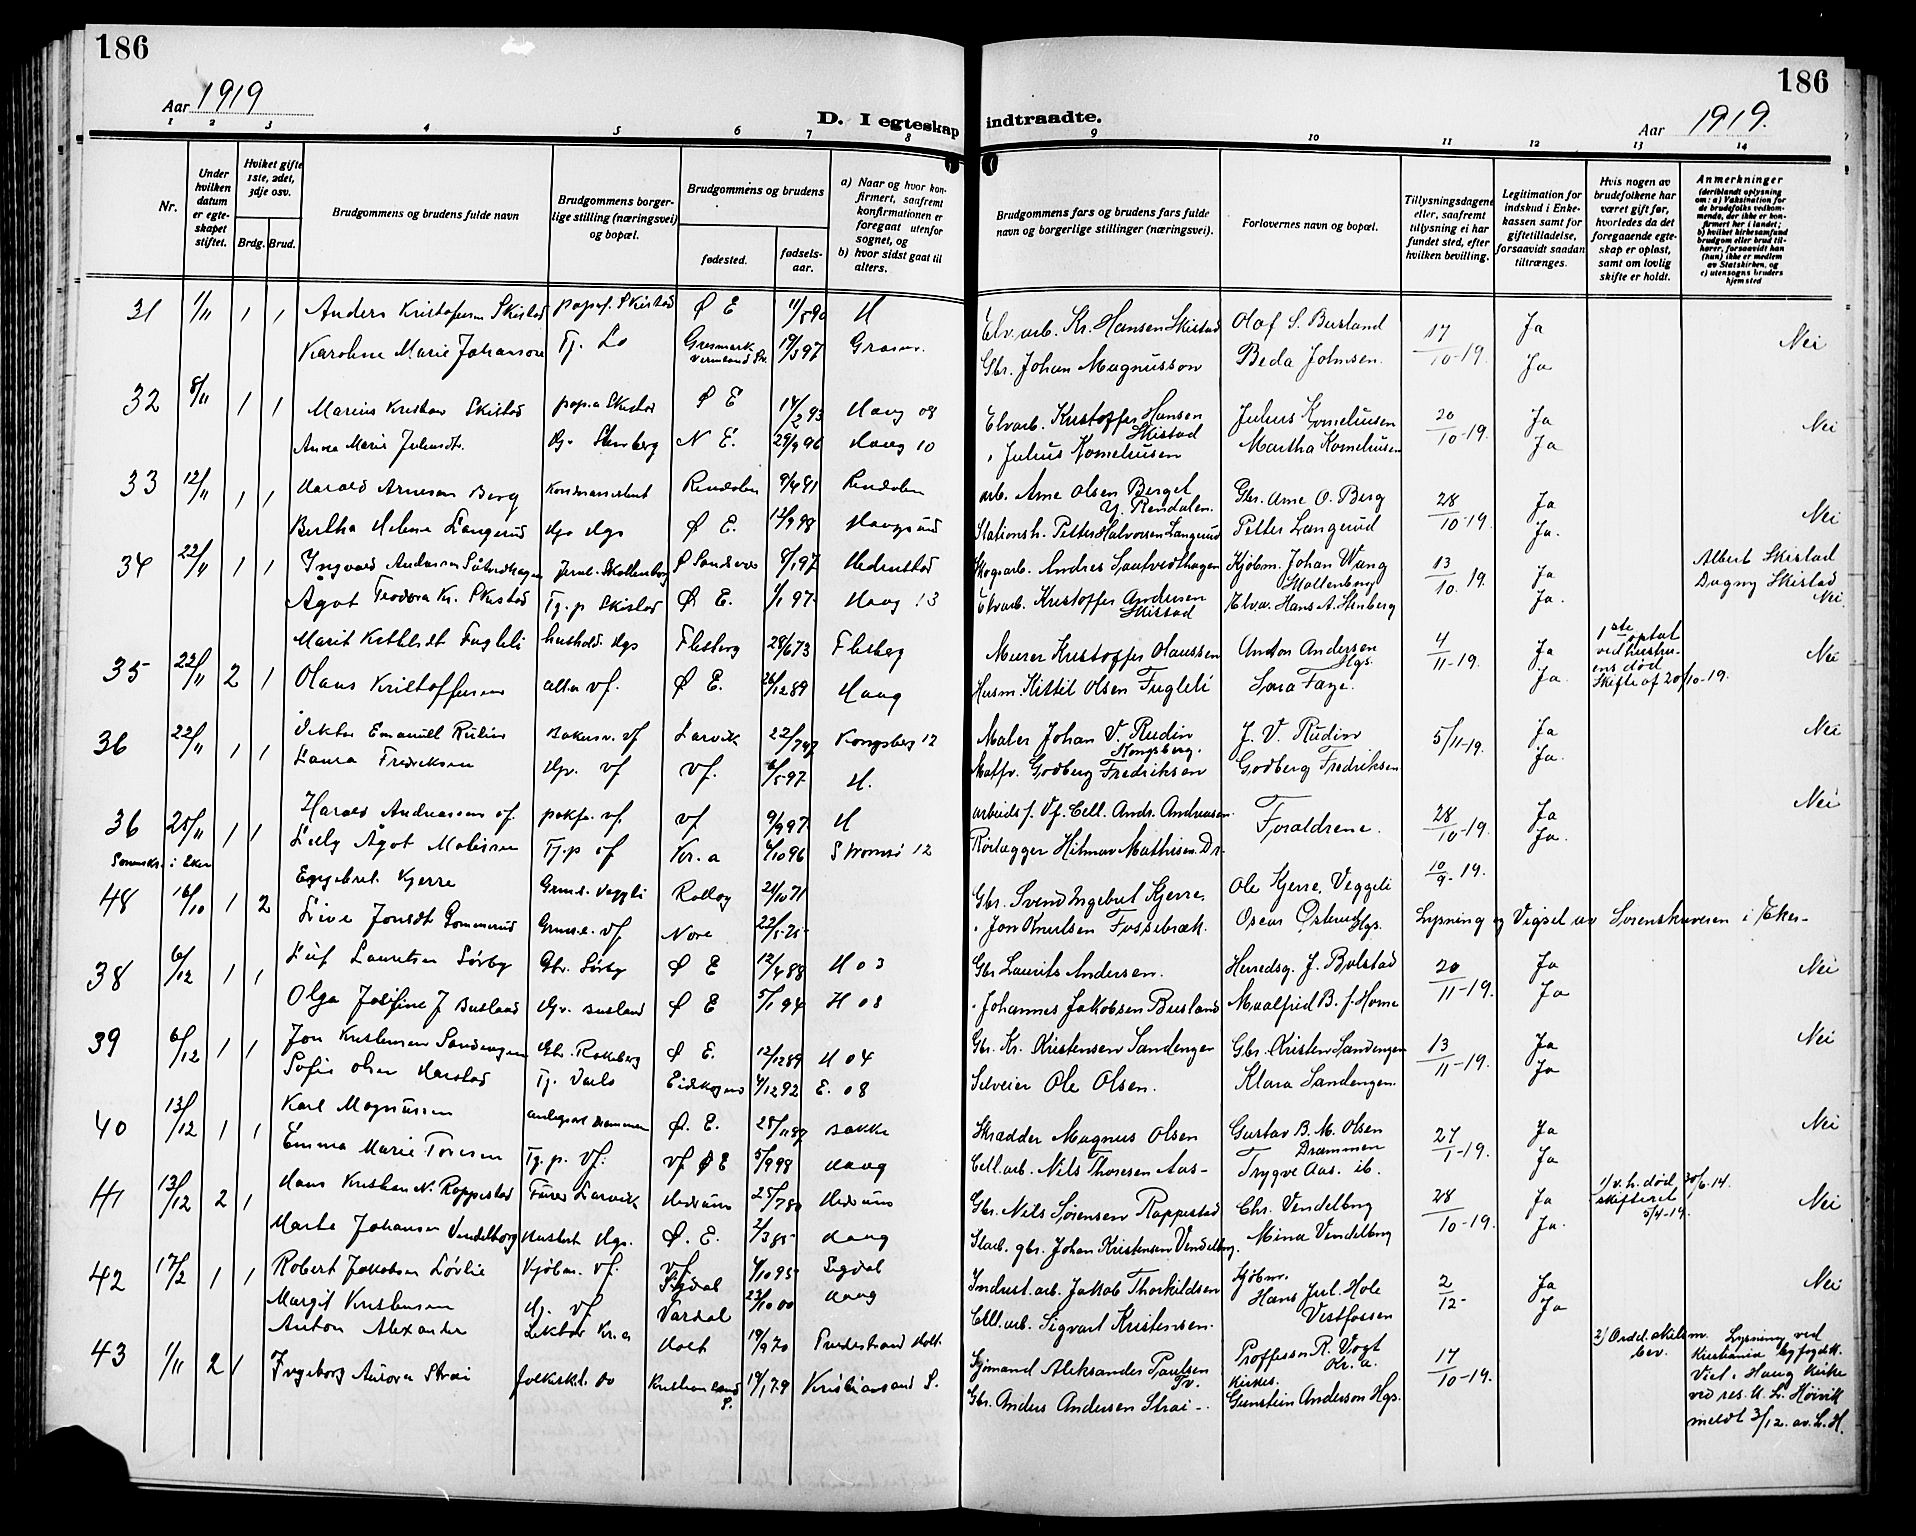 186
186
Aar 1919
Aar 1919.
D. I egteskap indtraadte.
1 2 3 4 5 6 7 8 9 10 11 12 13 14
Nr.
Under hvilken datum er egteskapet stiftet.
Hvilket gifte 1ste, 2det, 3dje osv.
Brdg. Brud.
Brudgommens og brudens fulde navn
Brudgommens borgerlige stilling (næringsvei) og bopæl.
Brudgommens og brudens
fødested.
fødselsaar.
a) Naar og hvor konfirmert, saafremt konfirmationen er foregaat utenfor sognet, og
b) hvor sidst gaat til alters.
Brudgommens fars og brudens fars fulde navn og borgerlige stillinger (næringsvei).
Forlovernes navn og bopæl.
Tillysningsdagene eller, saafremt tillysning ei har fundet sted, efter hvilken bevilling.
Legitimation for indskud i Enkekassen samt for giftetilladelse, forsaavidt saadan tiltrænges.
Hvis nogen av brudefolkene har været gift før, hvorledes da det foregaaende egteskap er opløst, samt om lovlig skifte er holdt.
Anmerkninger (deriblandt oplysning om: a) Vaksination for de brudefolks vedkommende, der ikke er konfirmert her i landet; b) hvilket kirkesamfund brudgom eller brud tilhører, forsaavidt han (hun) ikke er medlem av Statskirken, og c) utensogns bruders hjemsted
31 1/11 1 1 Anders Kristofersen Skistad papef. Skistad Ø E 11/5 90 H Elv.arb. Kr. Hansen Skistad Olaf S. Busland 17/10-19. Ja
Karoline Marie Johanson Tj. Do Gresmark Vermland Sv. 19/3 97 Grasm. Gbr. Johan Magnusson Beda Johnsen. Ja Nei
32 8/11 1 1 Marius Kristian Skistad pap.a Skistad Ø E 14/2 93 Haug 08 Elvarb. Kristoffer Hansen Skistad Julius Kornelius­en 20/10-19. Ja Nei
Anna Marie Juliusdt. Hj. Stenberg N E. 29/9 96 Haug 10 " Julius Korneliusen Martha Korneliusen Ja
33 12/11 1 1 Harald Arnesen Berg Rendalen 9/4 91 Rendalen arb. Arne Olsen Berget Y. Rendalen. Gbr. Arne O. Berg 28/10-19. Ja
Bertha Helene Langerud Hj. Hgs Ø E. 12/9 98 Haugsund Stationsh. Petter Halvorsen Langerud Petter Langerud Ja. Nei
34 22/11 1 1 Ingvald Andersen Jernb. Skollenborg Ø Sandsvær 8/1 97 Hedenstad Skogsarb. Andres Sautvedthagen Kjøbm. Johan Wang Skollenborg 13/10.19. Ja Albert Skistad
Ågot Teodora Kr. Skistad Tj.p Skistad Ø E. 1/1 97 Haug 13 Elvarb. Kristoffer Andersen Skistad Elv.a. Hans A. Stenberg Ja. Dagny Skistad Nei.
35 22/11 2 1 Marit Kittilsdt Fugleli hushold. Hgs Flesberg 28/6 73 Flesberg Murer Kristoffer Olaussen Anton Andersen Hgs. 4/11-19. Ja 1ste opløst ved hustruens død Nei
Olaus Kristoffersen Vf. Ø E. 26/12 89 Haug Husm. Kittil Olsen Fugleli Sara Faye. Ja. Skifte af 20/10-19.
36 22/11 1 1 Viktor Emanuel Rudin Vf Larvik 22/7 Kongsberg 12 Maler Johan V. Rudin Kongsberg. J. V. Rudin 5/11-19. Ja Nei
Laura Fredriksen Hj. Vf Vf. 6/5 97 H. Godberg Fredriksen Godberg Fredriksen Ja.
36 25/11 1 1 Harald Andreassen Vf. Vf. Vf 9/9 97 H arbeidsf. Vf. Cell. Andr. Andreasen Foraldrene. 28/10-19. Ja Nei
Lilly Ågot Tj.p Vf Kr.a 4/10 96 Strømsø 12 Rørlægger Hilmar Mathisen. Dr. Ja.
i Eker
48 16/10 1 2 Eggebret Kjerre Veggli Rollag 21/10 71 Gbr. Svend Ingebret Kjerre. Ole Kjerre, Veggeli 10/9-19.
Live Jonsdt Gommerud Vf. Nore 22/5-75 " Jon Knutsen Fossebræk. Oscar Østerud Hgs. Lysning og Vigsel av Sorenskriveren i Eker-
38 6/12 1 1 Leif Lauretsen Sørby Gbr. Sørby Ø E 12/4 88 H 03 Gbr Laurits Andersen. Herredsg. J. Bolstad 20/11-19. Ja Nei
Olga Josefine J Busland Hj. Busland Ø E 5/1 94 H 08 " Johannes Jakobsen Busland Maalfrid B. f. Horne Ja
39 6/12 1 1 Jon Kristensen Sandengen Gbr. Rakeberg Ø E. 12/12 89 H 04 Gbr. Kr. Kristensen Sandengen Gbr. Kristen Sandengen 13/11-19. Ja Nei
Sofie Olsen Harstad Tj. Varlo Eidskogens 4/12 92 E. 08 Selveier Ole Olsen. Klara Sandengen. Ja
40 13/12 1 1 Karl Magnussen Drammen Ø. E. 25/11 87 Bakke Skrædder Magnus Olsen Gustav B. M. Olsen Drammen 27/1-19. Ja Nei
Emma Marie Toresen Tj. p. Vf. Vf Ø E 5/9 98 Haug Cell.arb. Nils Thoresen Aas- Trygve Aas. ib. Ja
41 13/12 2 1 Hans Kristian N. Rappestad Larvik Hedrum 25/7 80 Hedrum Gbr. Nils Sørensen Rappestad Chr. Vendelborg 28/10-19. Ja 1/ v. h. død 30/6-14. skifteret 5/4-19. Nei
Marta Johansen Vendelborg Hgs. Ø. E. 2/3 85 Haug Slag. gbr. Johan Kristensen Vendelborg. Mina Vendelborg Ja.
42 17/2 1 1 Robert Jakobsen Løvlie Kjøbm. Vf. Vf. Sigdal 4/10 95 Sigdal Indust.arb. Jakob Thorkildsen Kjøbm. Hans Jul. Hole Vestfossen 2/12- Ja Nei
Margit Kristensen Hj. Vf Vardal 23/10 00 Haug Cell.arb. Sigvart Kristensen. Ja
43 1/11 2 1 Anton Alexander Lektor Kr.a Holt 19/9 70 Tvedestrand Holt. Sjømand Aleksander Paulsen Tv. Proffessor R. Vogt Kr.a. 17/10-19. 2) Ordd. skilsm. bev. Lysning ved Kristiania byfogdk.
Ingeborg Aurora Strai folkeskl. Do Kristiansand S. 19/1 79 Kristiansand S. Gbr. Anders Andersen Strai-. Kirkes. Gunstein Anderson Hgs. Viet i Haug Kirke ved res. k. L. Høivik meldt 3/12. av L. H.